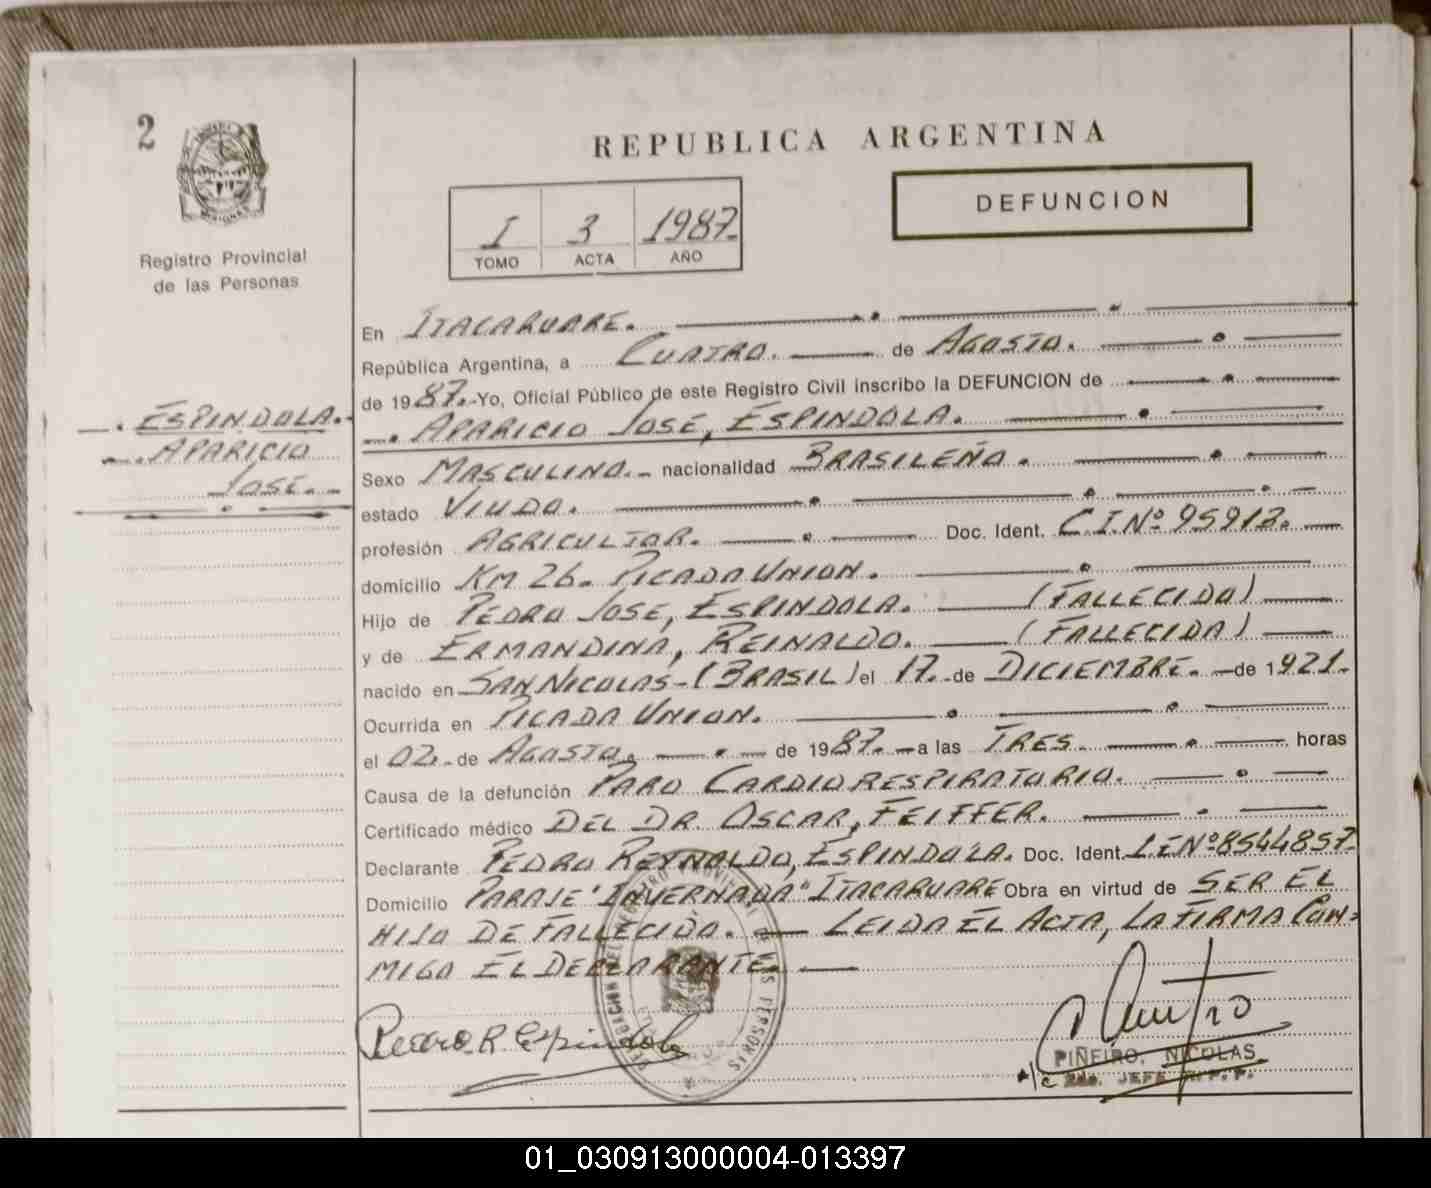 2
REPUBLICA ARGENTINA
DEFUNCION
I 3 1987.
TOMO ACTA AÑO
Registro Provincial
de las Personas
ESPINDOLA.
APARICIO
JOSÉ.
En ITACARUARE.
República Argentina, a CUATRO. de AGOSTO.
de 1987. Yo, Oficial Público de este Registro Civil inscribo la DEFUNCION de
APARICIO JOSÉ, ESPINDOLA.
Sexo MASCULINO. nacionalidad BRASILEÑO.
estado VIUDO.
profesión AGRICULTOR. Doc. Ident. C.I.Nº 95913.
domicilio KM 26. PICADA UNION.
Hijo de PEDRO JOSE, ESPINDOLA. (FALLECIDO)
y de ERMANDINA, REINALDO. (FALLECIDA)
nacido en SAN NICOLAS-(BRASIL) el 17. de DICIEMBRE. de 1921.
Ocurrida en PICADA UNION.
el 02. de AGOSTO. de 1987. a las TRES. horas
Causa de la defunción PARO CARDIORESPIRATORIO.
Certificado médico DEL DR. OSCAR, FEIFFER.
Declarante PEDRO REYNALDO, ESPINDOLA. Doc. Ident. L.E Nº 8544857.
Domicilio PARAJE "INVERNADA" ITACARUARE Obra en virtud de SER EL
HIJO DE FALLECIDO. LEIDA EL ACTA, LA FIRMA CON-
MIGO EL DECLARANTE.
Pedro R. Espindola
PIÑEIRO, NICOLAS
01_030913000004-013397